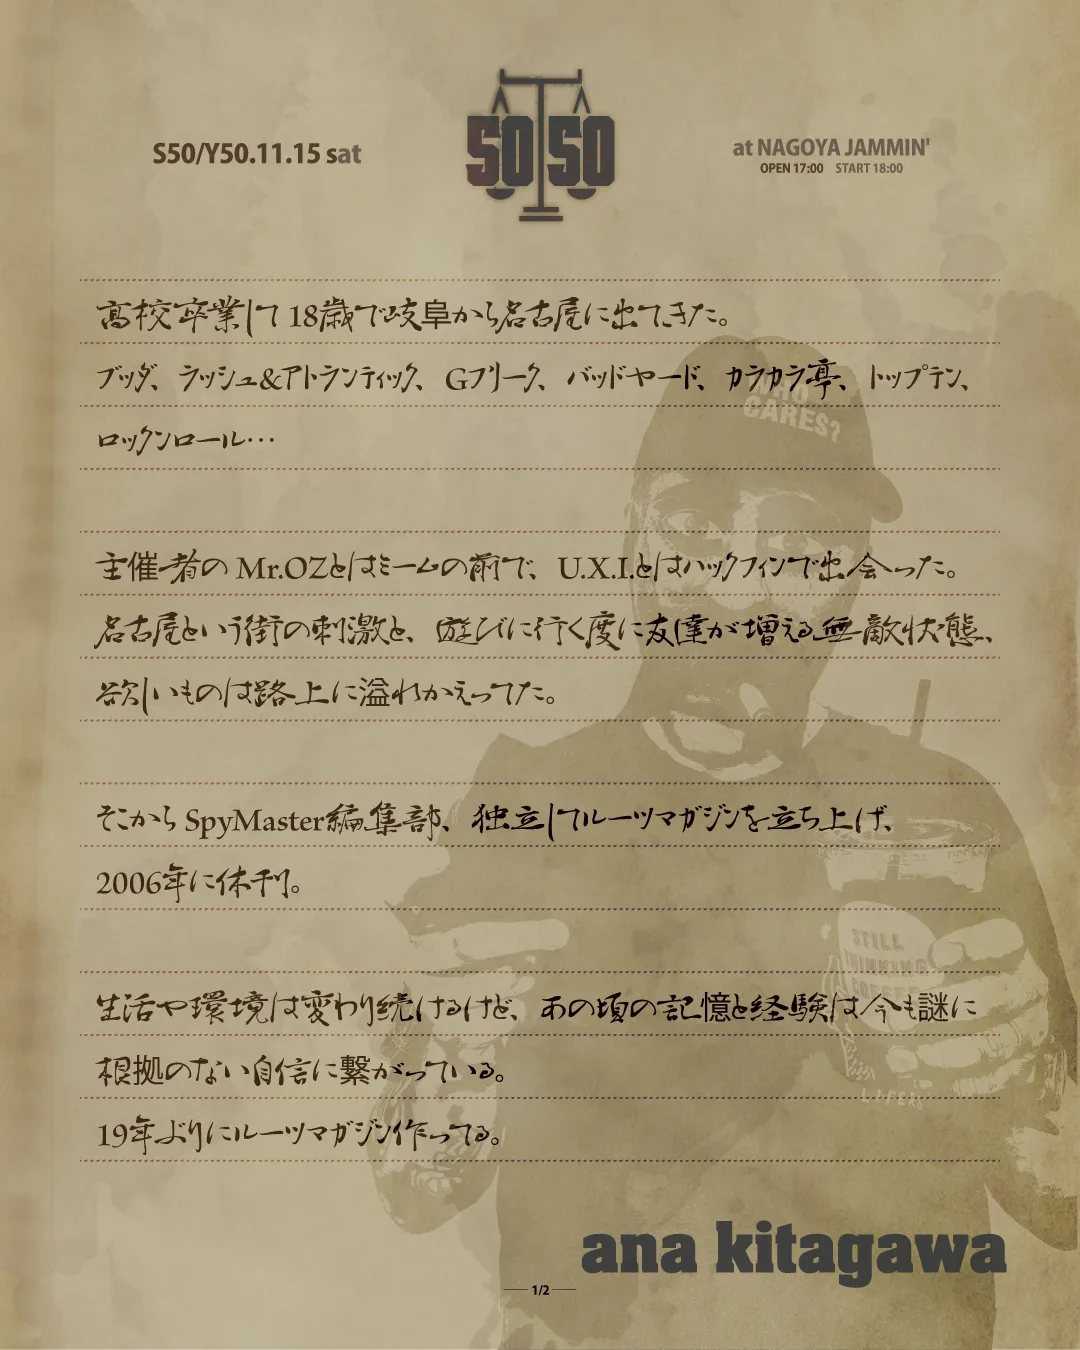 S50/Y50.11.15 sat
50 50
at NAGOYA JAMMIN'
OPEN 17:00 START 18:00
高校卒業して 18歳で岐阜から名古屋に出てきた。
ブッダ、ラッシュ&アトランティック、Gフリーク、バッドヤード、カラカラ亭、トップテン、
ロックンロール…
主催者の Mr.OZとはミームの前で、U.X.I.とはハックフィンで出会った。
名古屋という街の刺激と、遊びに行く度に友達が増える無敵状態、
欲しいものは路上に溢れかえってた。
そこから SpyMaster編集部、独立してルーツマガジンを立ち上げ、
2006年に休刊。
生活や環境は変わり続けるけど、あの頃の記憶と経験は今も謎に
根拠のない自信に繋がっている。
19年ぶりにルーツマガジン作ってる。
WHO
CARES?
STILL
THINKING
COFFEE
LIFERS
ana kitagawa
1/2